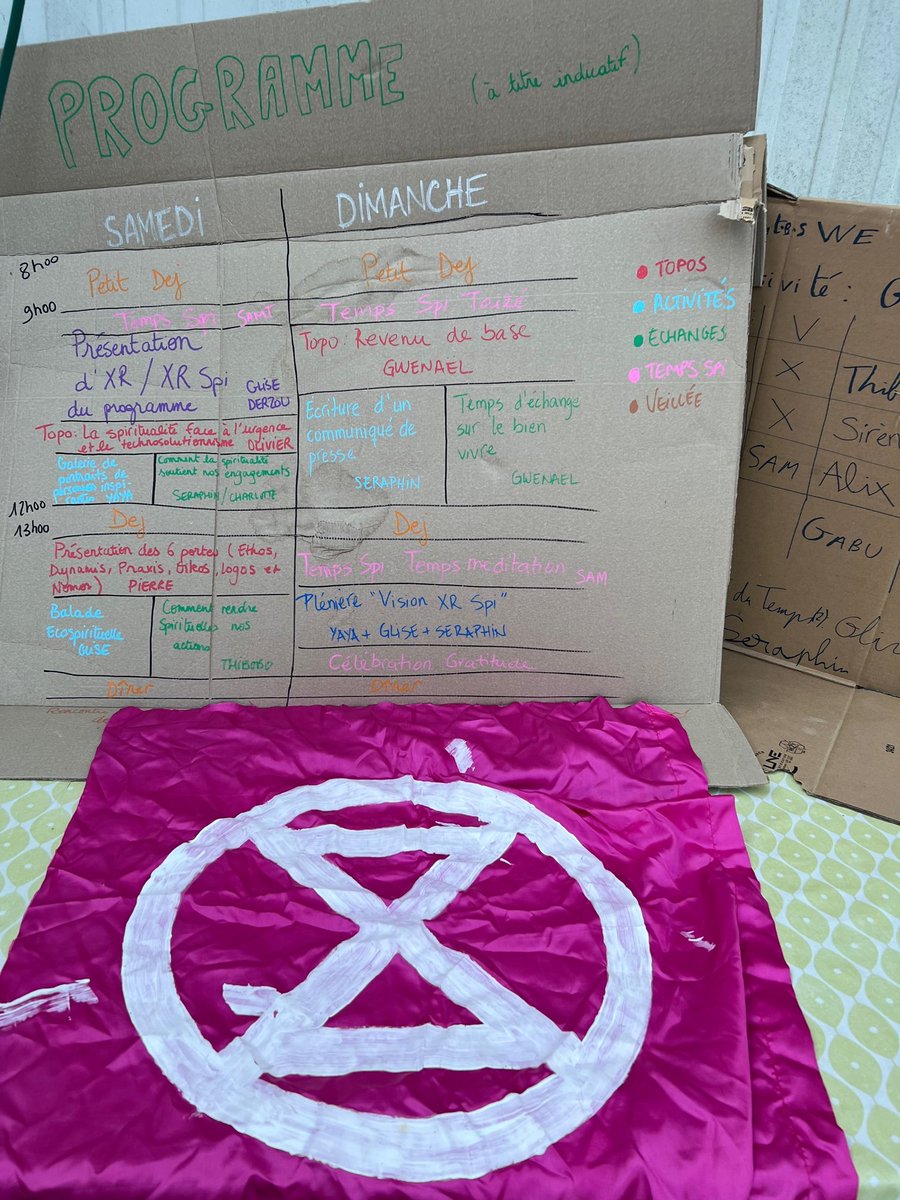 PROGRAMME (à titre indicatif)
SAMEDI
DIMANCHE
8h00
Petit Dej
Petit Dej
9h00
Temps Spi SAMI
Temps Spi Taizé
Présentation
d'XR / XR Spi
du programme
GLISE
DERZOU
Topo: Revenu de base
GWENAEL
Topo: La spiritualité face à l'urgence
et le technosolutionnisme OLIVIER
Ecriture d'un
communiqué de
presse
SERAPHIN
Temps d'échange
sur le bien
vivre
GWENAEL
Galerie de
portraits de
YAYA
Comment la spiritualité
soutient nos engagements
SERAPHIN/CHARLOTTE
12h00
13h00
Dej
Dej
Présentation des 6 portes (Ethos,
Dynamis, Praxis, Oikos, logos et
Nomos) PIERRE
Temps Spi: Temps méditation SAM
Balade
Ecospirituelle
GLISE
Comment rendre
Spirituelles nos
actions
THIBOBO
Plénière "Vision XR Spi"
YAYA + GLISE + SERAPHIN
Célébration Gratitude
Dîner
Dîner
TOPOS
ACTIVITÉS
ÉCHANGES
TEMPS SPI
VEILLÉE
WE
ivité: G
V
X
X
Thib
Siren
SAM
Alix
GABU
du Temps
Seraphin